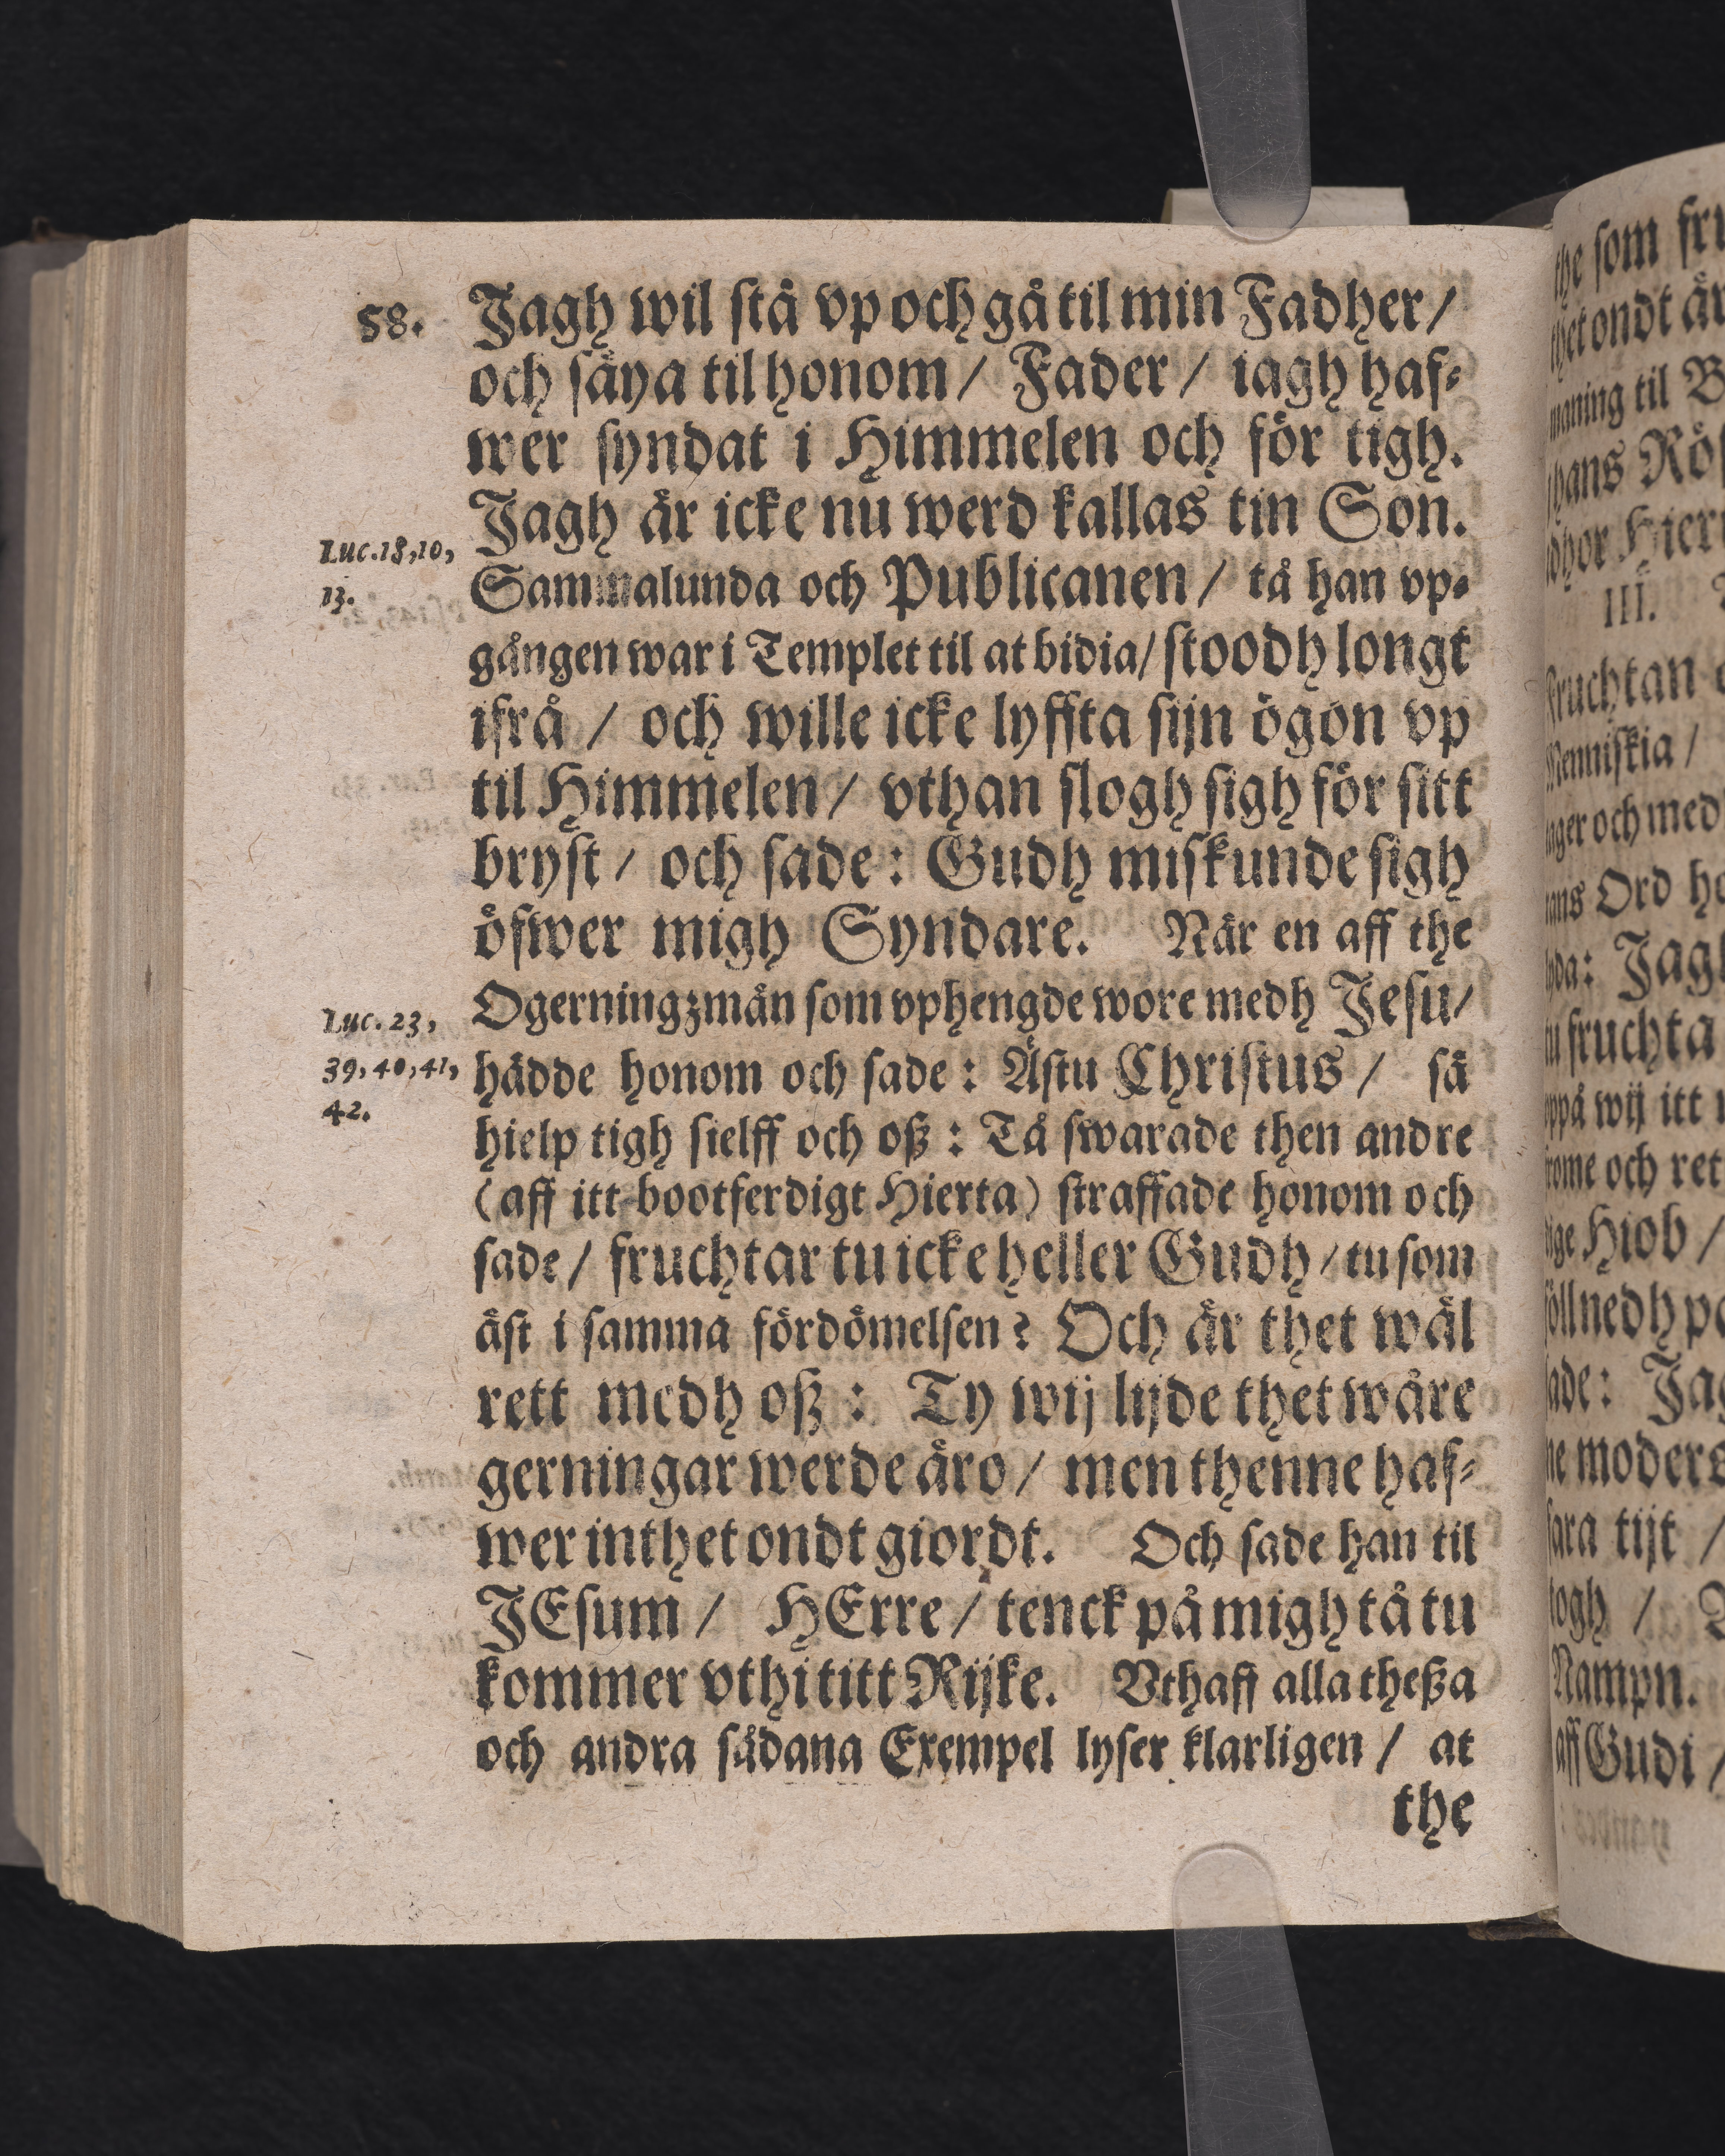 58.
Jagh wil stå vp och gå til min Fadher /
och säya til honom / Fader / iagh haf-
wer syndat i Himmelen och för tigh.
Jagh är icke nu werd kallas tin Son.
Luc. 18, 10,
13.
Sammalunda och Publicanen / tå han vp-
gången war i Templet til at bidia / stoodh longt
ifrå / och wille icke lyffta sijn ögon vp
til Himmelen / vthan slogh sigh för sitt
bryst / och sade : Gudh miskunde sigh
öfwer migh Syndare. När en aff the
Luc. 23,
39, 40, 41,
42.
Ogerningzmän som vphengde wore medh Jesu /
hädde honom och sade : Ästu Christus / så
hielp tigh sielff och oß : Tå swarade then andre
(aff itt bootferdigt Hierta) straffade honom och
sade / fruchtar tu icke heller Gudh / tu som
äst i samma fördömelsen ? Och är thet wäl
rett medh oß : Ty wij lijde thet wåre
gerningar werde äro / men thenne haf-
wer inthet ondt giordt. Och sade han til
JEsum / HErre / tenck på migh tå tu
kommer vthi titt Rijke. Vthaff alla theßa
och andra sådana Exempel lyser klarligen / at
the
the som
thet ondt
maning til
hans
III.
fruchtan
Menniskia /
och med
Ord
Jagh
fruchta
wij itt
och ret
Hiob /
nedh
moders
tijt /
/
Nampn.
aff Gudi /